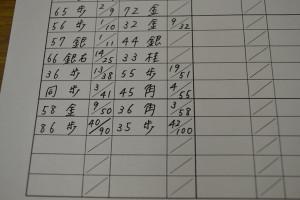 65 歩 2/9 72 金
56 歩 1/10 32 金 9/32
57 銀 1/11 44 銀
66 銀右 14/25 33 桂
36 歩 13/38 55 歩 19/51
同 歩 3/41 45 角 4/55
58 金 9/50 36 角 3/58
86 歩 40/90 35 歩 42/100